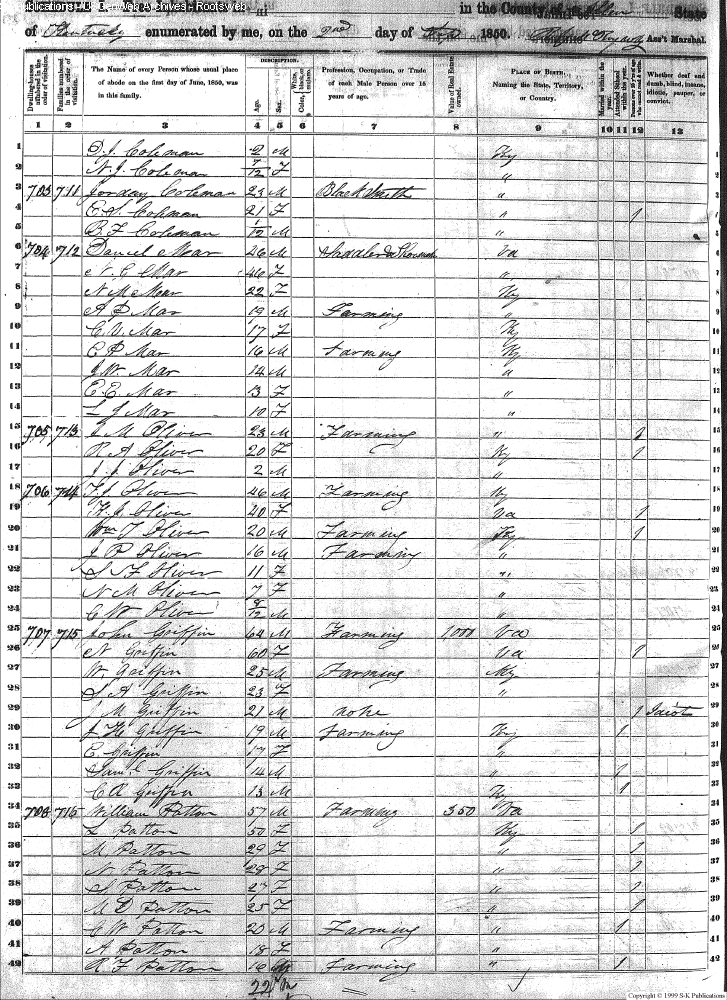 Publications / U.S. GenWeb Archives - Rootsweb
in the County of Allen State
of Kentucky enumerated by me, on the 2nd day of 1850. Ass't Marshal.
Dwelling-houses numbered in the order of visitation.
Families numbered in the order of visitation.
The Name of every Person whose usual place of abode on the first day of June, 1850, was in this family.
DESCRIPTION.
Age.
Sex.
Color, White, black, or mulatto.
Profession, Occupation, or Trade of each Male Person over 15 years of age.
Value of Real Estate owned.
PLACE OF BIRTH, Naming the State, Territory, or Country.
Married within the year.
Attended School within the year.
Persons over 20 y'rs of age who cannot read & write.
Whether deaf and dumb, blind, insane, idiotic, pauper, or convict.
1 2 3 4 5 6 7 8 9 10 11 12 13
1 D. J. Coleman 2 M Ky 1
2 N. J. Coleman 7/12 F " 2
3 703 711 Jorday Coleman 23 M Blacksmith " 3
4 E. S. Colman 21 F " 1 4
5 B. F. Coleman 1/12 M 5
6 704 712 Daniel Mar 46 M Va 6
7 N. C. Mar 46 F " 7
8 N M Mear 22 F Ky 8
9 A P Mar 19 M Farming " 9
10 C. W. Mar 17 F Ky 10
11 E P Mar 16 M Farming Ky 11
12 J. W. Mar 14 M " 12
13 E. E. Mar 13 F " 13
14 L J Mar 10 F " 14
15 705 713 J M Oliver 23 M Farming " 1 15
16 R A Oliver 20 F Ky 1 16
17 J. J. Oliver 2 M " 17
18 706 714 F. J. Oliver 46 M Farming Ky 18
19 H. C. Oliver 40 F Va 1 19
20 Wm T Oliver 20 M Farming Ky 1 20
21 J P Oliver 16 M Farming " 21
22 S F Oliver 11 F " 22
23 N M Oliver 7 F " 23
24 C W Oliver 8/12 M 24
25 707 715 John Griffin 64 M Farming 1000 Va 25
26 N Griffin 60 F Va 1 26
27 W. Griffin 25 M Farming Ky 27
28 S A Griffin 23 F " 28
29 J M Griffin 21 M none 1 Idiot 29
30 J H Griffin 19 M Farming Ky 1 30
31 E. Griffin 17 F " 31
32 Saml Griffin 14 M " 1 32
33 C A Griffin 13 M Ky 1 33
34 708 716 William Patton 57 M Farming 350 Va 34
35 L Patton 50 F Ky 1 35
36 M Patton 29 F " 1 36
37 N Patton 28 F " 1 37
38 S Patton 27 F " 1 38
39 M D Patton 25 F " 1 39
40 C W Patton 20 M Farming " 1 40
41 A Patton 18 F " 41
42 R F Patton 16 M Farming " 1 42
Copyright © 1999 S-K Publications